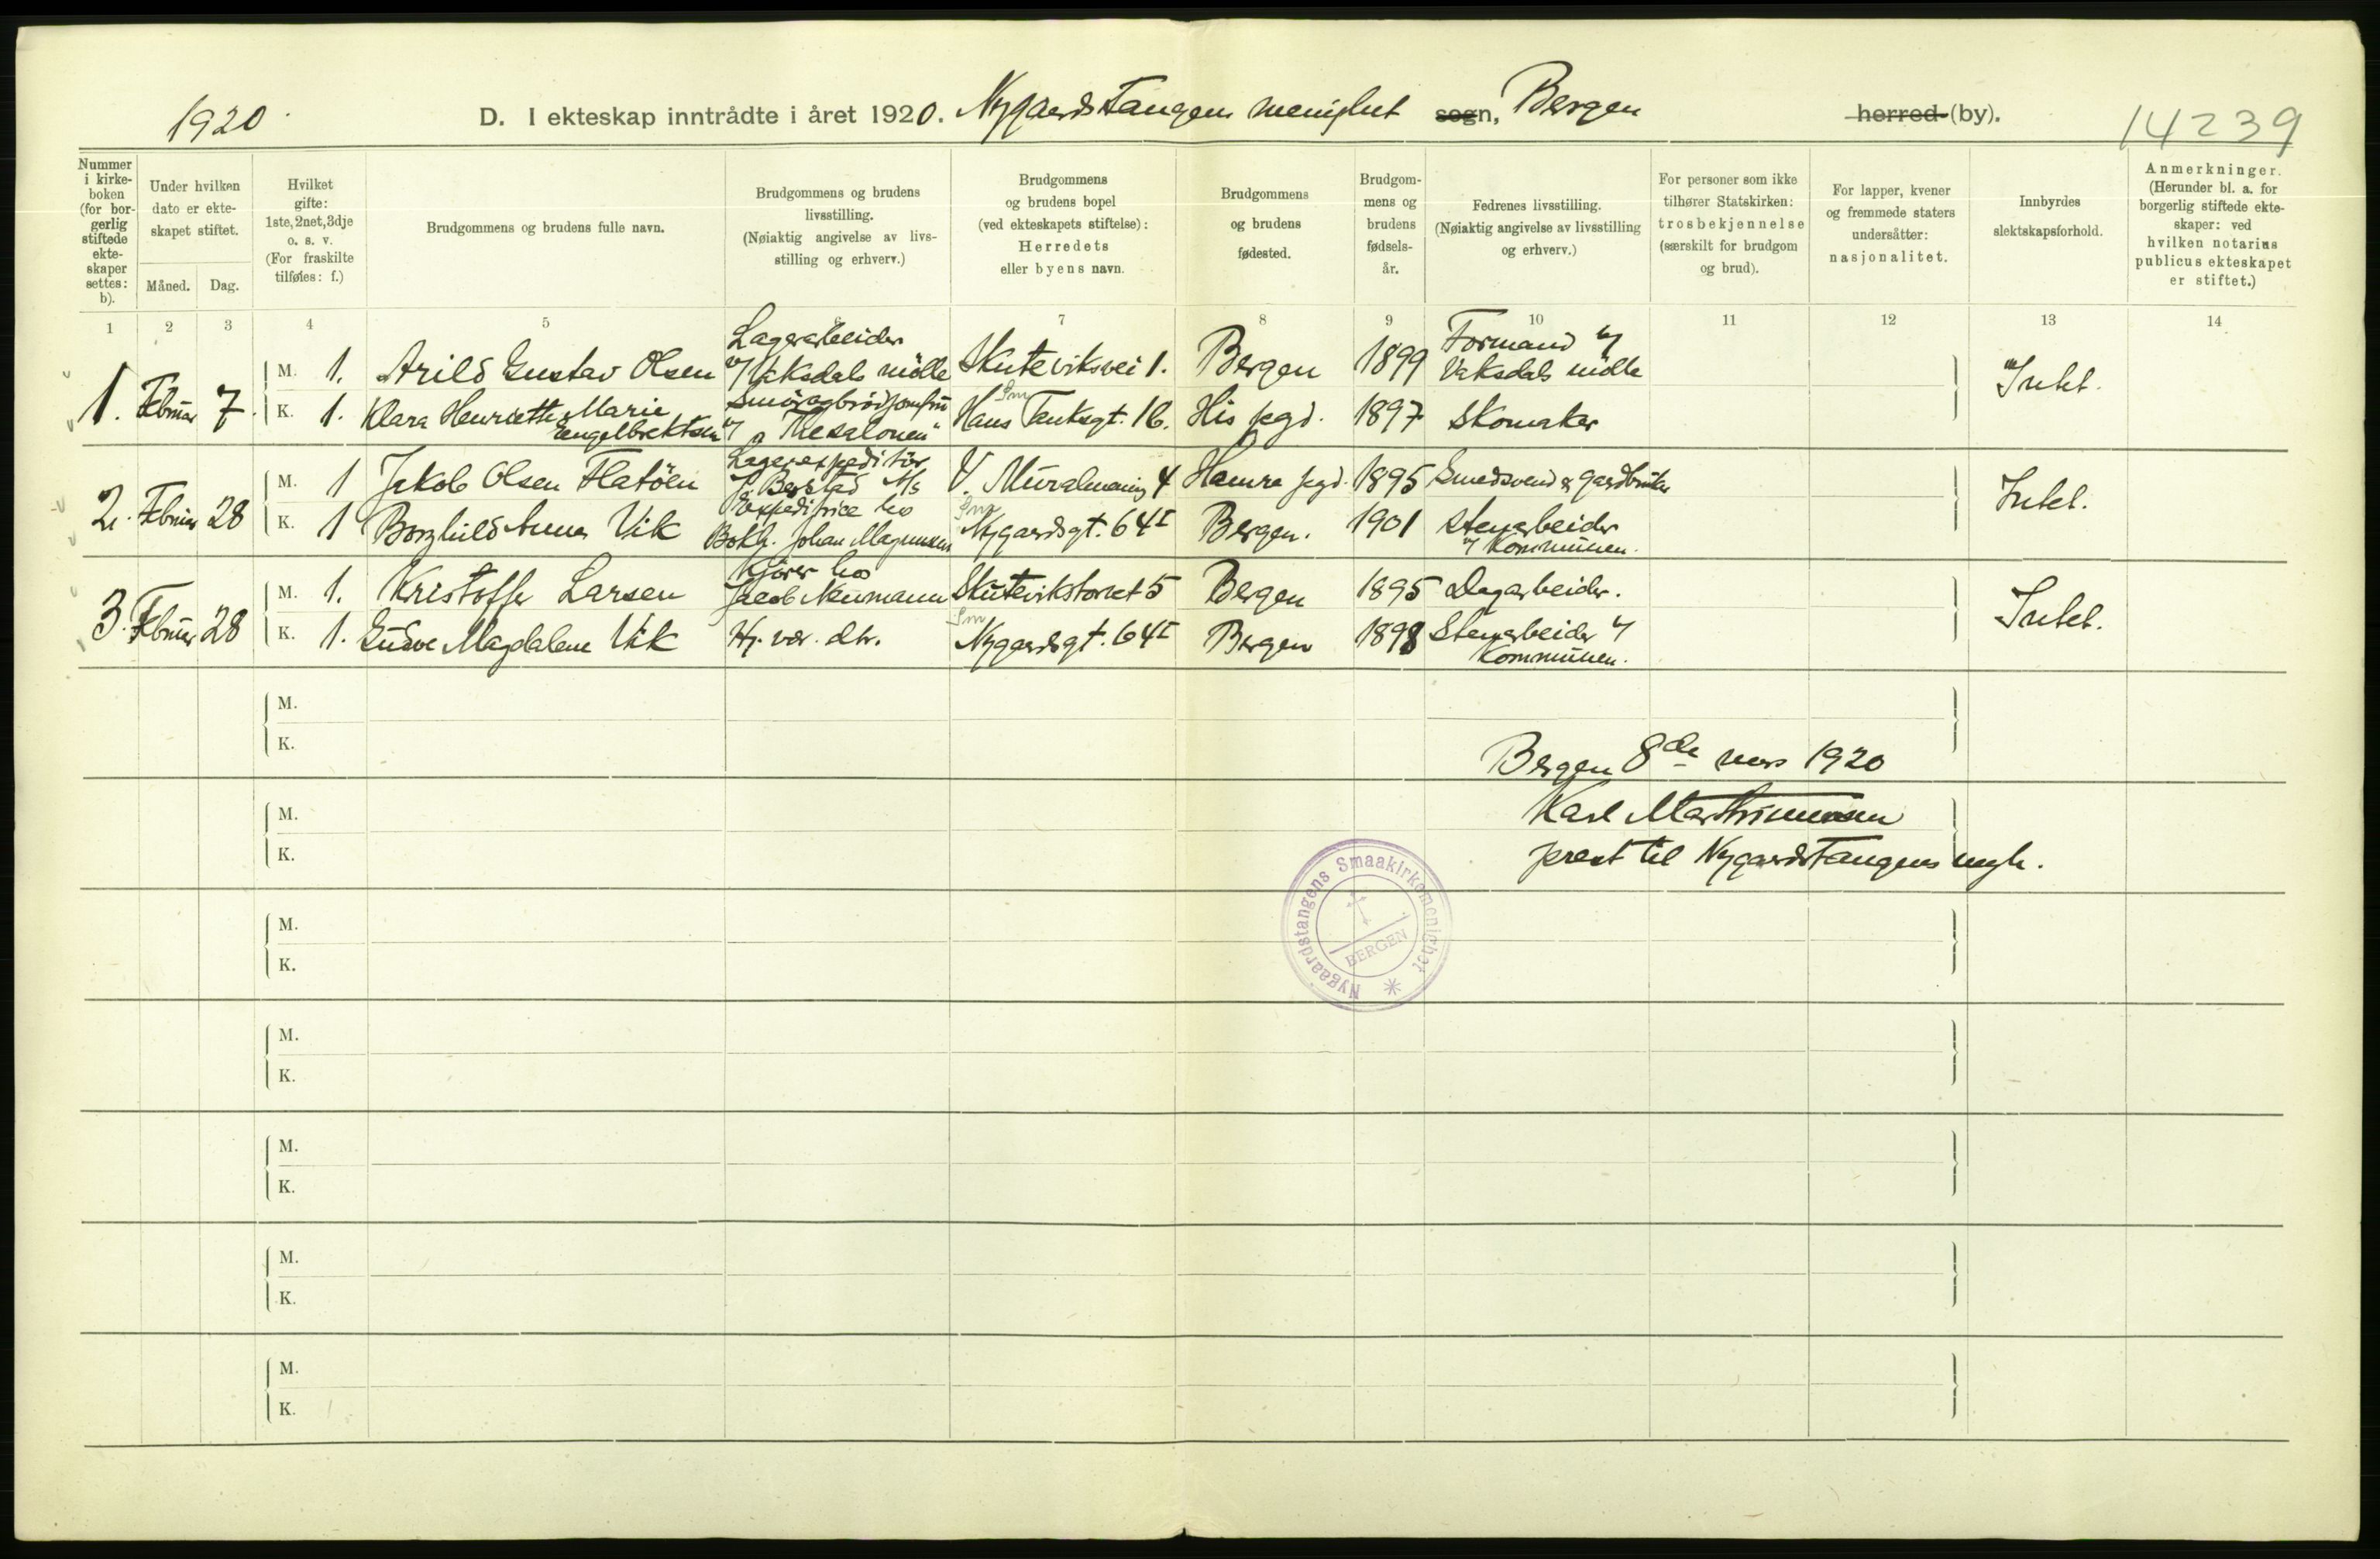 1920
D. I ekteskap inntrådte i året 1920. Nygaardstangens menighet sogn, Bergen herred (by).
14239
Nummer i kirkeboken (for borgerlig stiftede ekteskaper settes: b).
Under hvilken dato er ekteskapet stiftet.
Måned. Dag.
Hvilket gifte: 1ste, 2net, 3dje o. s. v. (For fraskilte tilføies: f.)
Brudgommens og brudens fulle navn.
Brudgommens og brudens livsstilling. (Nøiaktig angivelse av livsstilling og erhverv.)
Brudgommens og brudens bopel (ved ekteskapets stiftelse): Herredets eller byens navn.
Brudgommens og brudens fødested.
Brudgommens og brudens fødselsår.
Fedrenes livsstilling. (Nøiaktig angivelse av livsstilling og erhverv.)
For personer som ikke tilhører Statskirken: trosbekjennelse (særskilt for brudgom og brud).
For lapper, kvener og fremmede staters undersåtter: nasjonalitet.
Innbyrdes slektskapsforhold.
Anmerkninger. (Herunder bl. a. for borgerlig stiftede ekteskaper: ved hvilken notarius publicus ekteskapet er stiftet.)
1 2 3 4 5 6 7 8 9 10 11 12 13 14
1. Februar 7. M. 1. Arild Gustav Olsen Lagerarbeider v/ Vaksdals mölle Skuteviksvei 1. Bergen 1899 Formand v/ Vaksdals mölle Intet.
K. 1. Klara Henriette Marie Engelbrektsen Smörogbrödjomfru v/ "Thesalonen" Hans Tanksgt. 16. His pgd. 1897 Skomaker
2. Februar 28 M. 1 Jakob Olsen Flatöen Lagerexpeditör Berstad A/s V. Muralmening 4 Hamre pgd. 1895 Smedsvend & gardbruker Intet.
K. 1 Borghild Anna Vik Expeditrice hos Bokh. Johan Magnussen Nygaardsgt. 64 I Bergen. 1901 Stenarbeider v/ Kommunen.
3. Februar 28 M. 1. Kristoffer Larsen Kjörer hos Jacob Neumann Skutevikstorvet 5 Bergen 1895 Dagarbeider. Intet.
K. 1. Gudve Magdalene Vik Hj. vær. dtr. Nygaardsgt. 64 I Bergen 1898 Stenarbeider v/ Kommunen.
M.
K.
Bergen 8de mars 1920
M.
Karl Marthinussen
K.
prest til Nygaardstangens mgh.
Nygaardstangens Smaakirkemenighet
BERGEN
M.
K.
M.
K.
M.
K.
M.
K.
M.
K.